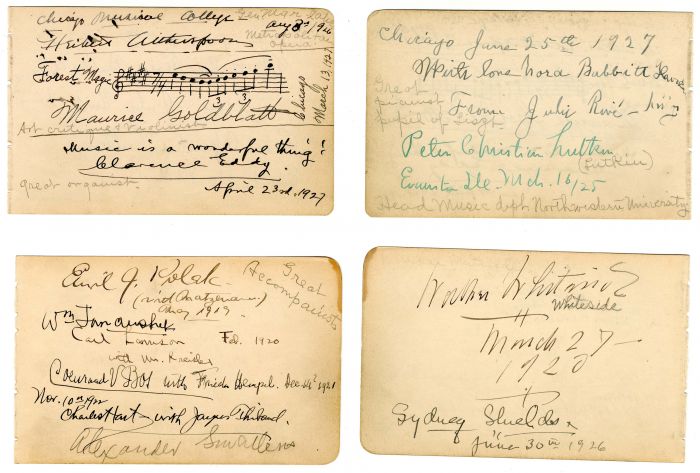 Chicago Musical College
Aug 3rd 1926
Metropolitan
opera
Herbert Witherspoon
"Forest Magic
3 3
Chicago
March 13, 1927
Maurice Goldblatt
Art critique & violinist
"Music is a wonderful thing"
Clarence Eddy.
great organist.
April 23rd, 1927
Chicago June 25th 1927
With love Nora Babbitt
Great
pianist
pupil of Liszt
From Julie Rivé-King
Peter Christian Lutkin
(Lutkin)
Evanston Ill. Mch. 16/25
Head Music dept Northwestern University
Emil J. Polak
(with Matzenauer)
May 1919.
Great
Accompanists
Wm Janaushek
Carl Lamson Feb. 1920
with Mr. Kreisler
Coenraad V Bos with Frieda Hempel. Dec. 1921
Nov. 10th 1922
Charles Hart with Jacques Thibaud.
Alexander Smallens
Walker Whiteside
Whiteside
March 27-
1920
Sydney Shields
June 30th 1926